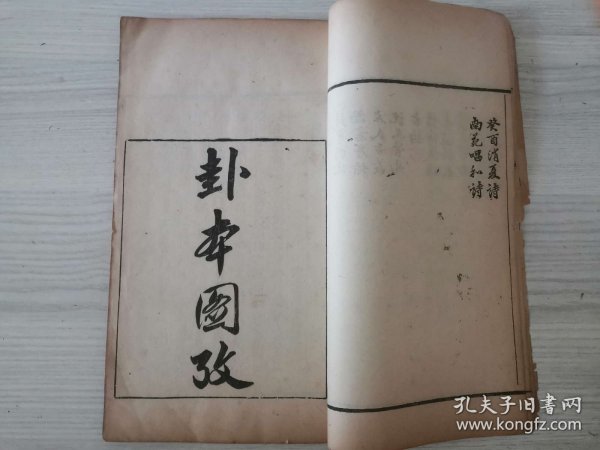 癸酉消夏詩
南苑唱和詩
卦本圖攷
孔夫子旧书网
kongfz.com